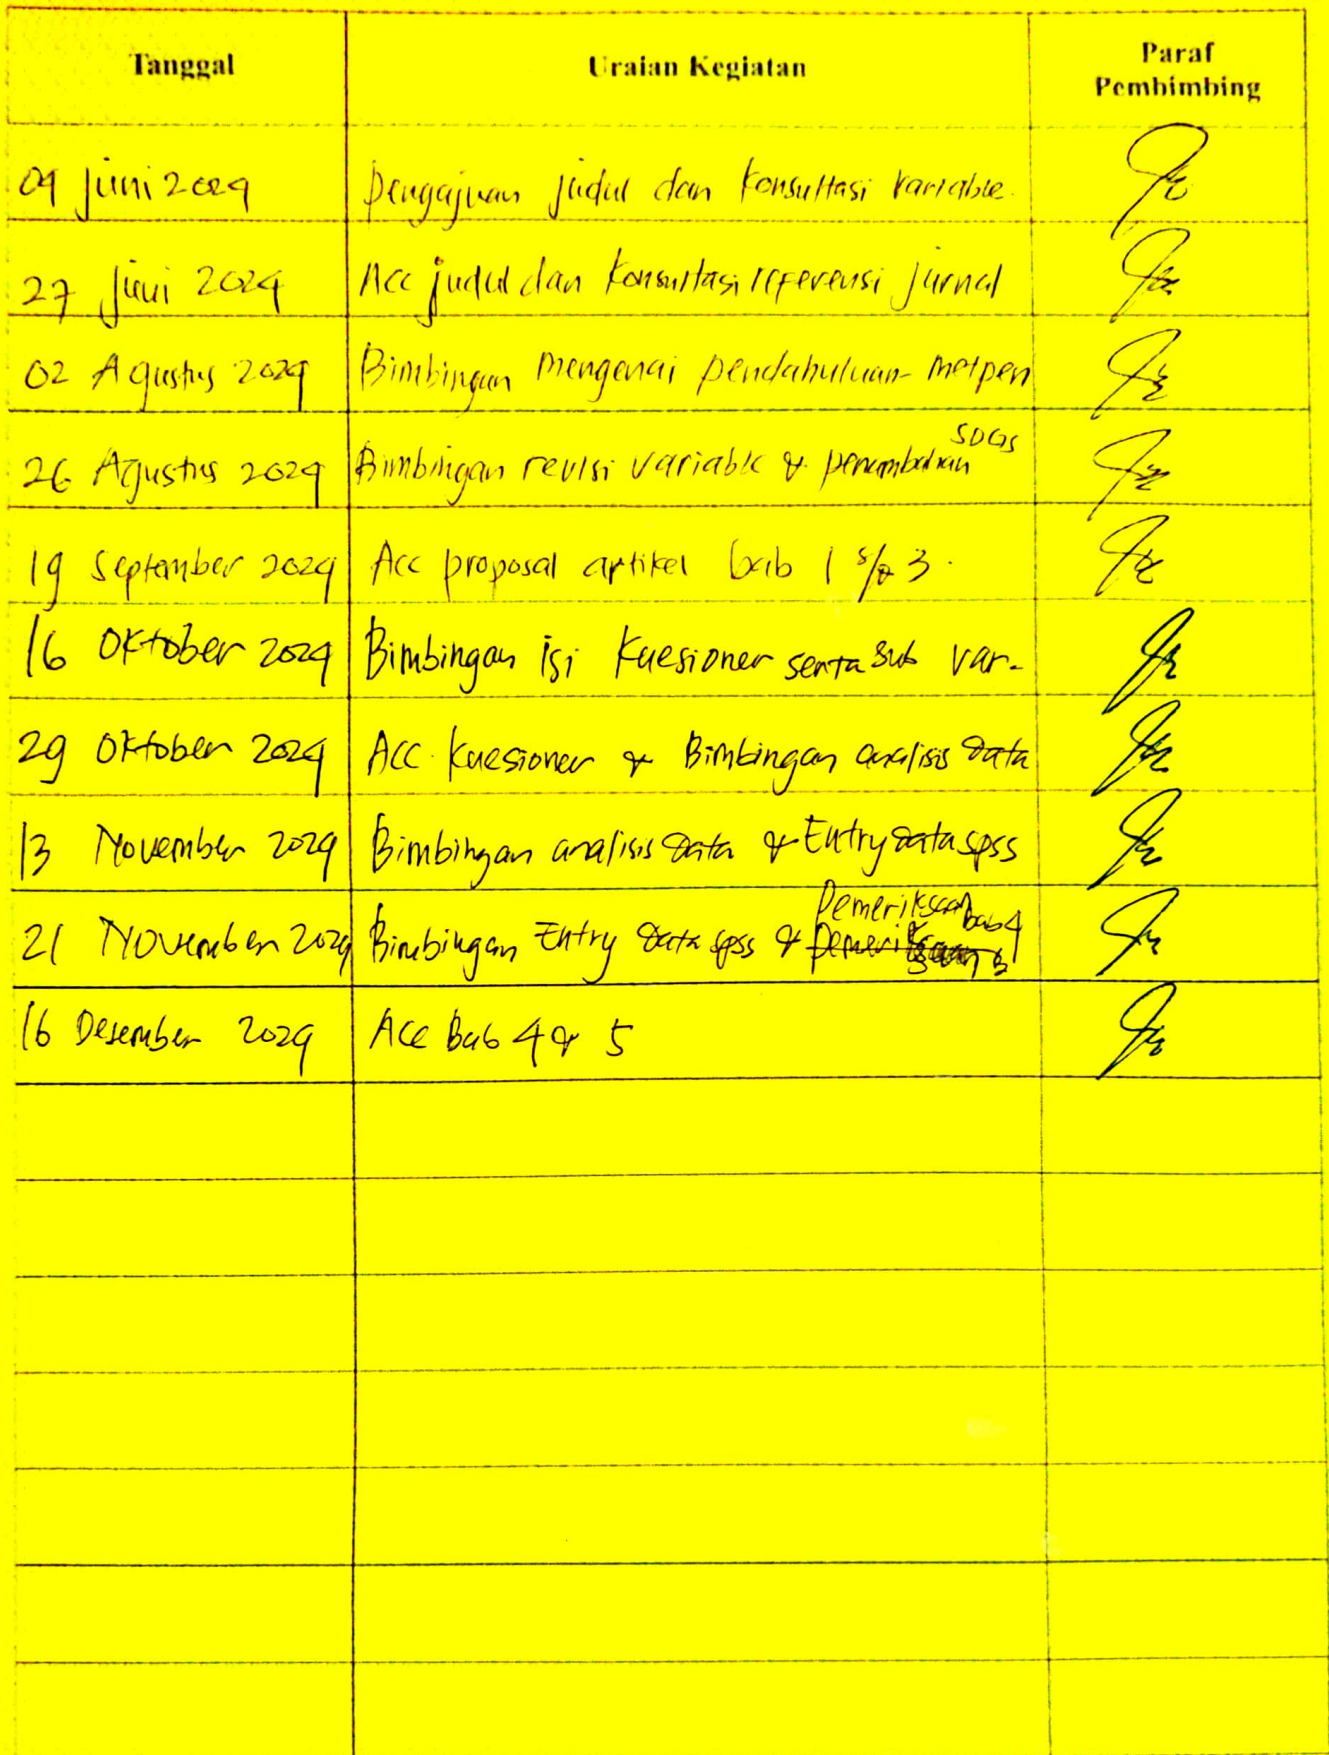 Tanggal Uraian Kegiatan Paraf Pembimbing
04 Juni 2024 Pengajuan judul dan konsultasi variable.
27 Juni 2024 Acc judul dan konsultasi referensi jurnal
02 Agustus 2024 Bimbingan mengenai pendahuluan - metpen
26 Agustus 2024 Bimbingan revisi variable & penambahan SDGs
19 September 2024 Acc proposal artikel bab 1 s/d 3.
16 Oktober 2024 Bimbingan isi kuesioner serta sub var.
29 Oktober 2024 Acc. kuesioner & Bimbingan analisis data
13 November 2024 Bimbingan analisis data & Entry data spss
21 November 2024 Bimbingan Entry data spss & Pemeriksaan bab 4
16 Desember 2024 Acc Bab 4 & 5